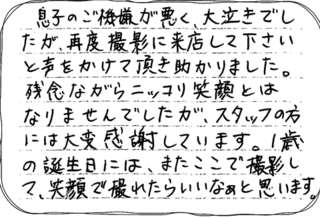 息子のご機嫌が悪く、大泣きでし
たが、再度撮影に来店して下さい
と声をかけて頂き助かりました。
残念ながらニッコリ笑顔とは
なりませんでしたが、スタッフの方
には大変感謝しています。1歳
の誕生日には、またここで撮影し
て、笑顔で撮れたらいいなぁと思います。